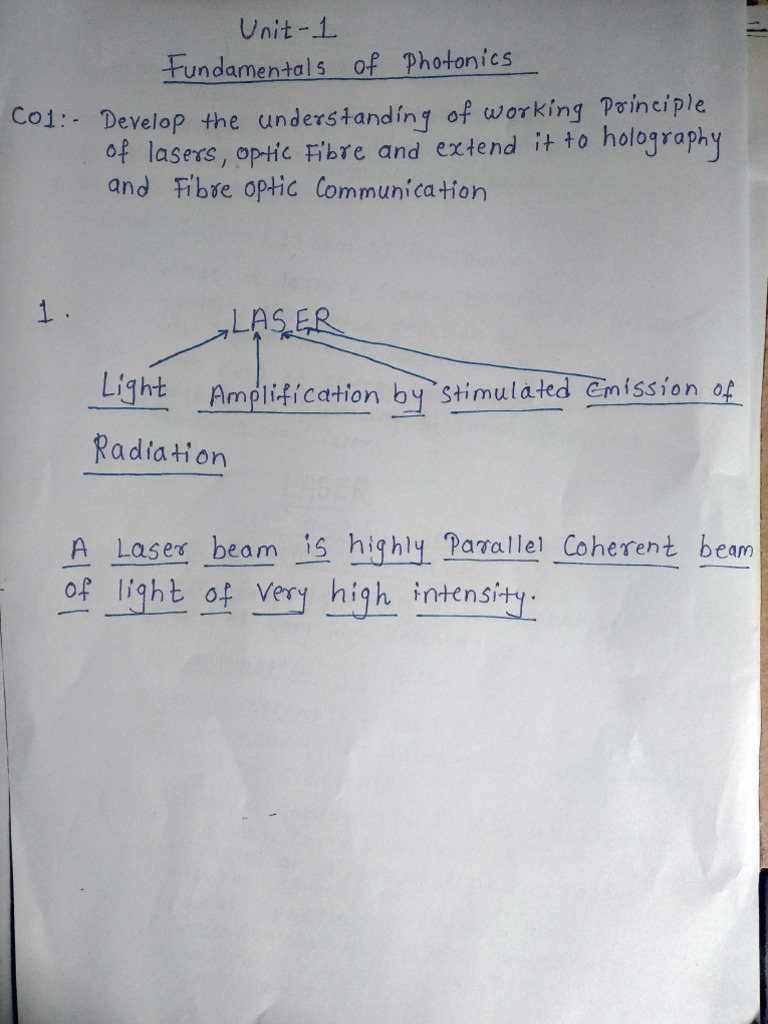 Unit-1
Fundamentals of Photonics
CO1:- Develop the understanding of working Principle
of lasers, optic Fibre and extend it to holography
and Fibre optic Communication
1. LASER
Light Amplification by Stimulated Emission of
Radiation
A Laser beam is highly Parallel Coherent beam
of light of very high intensity.